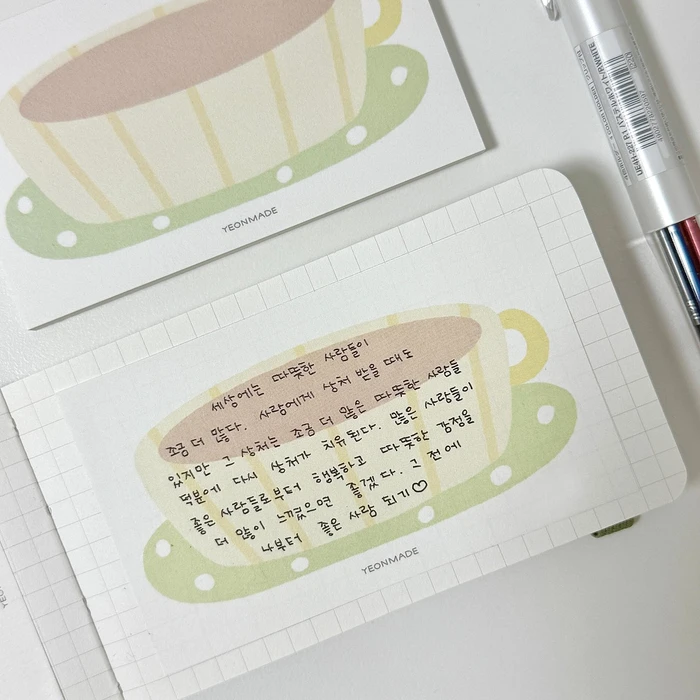 YEONMADE
세상에는 따뜻한 사람들이
조금 더 많다. 사람에게 상처 받을 때도
있지만 그 상처는 조금 더 많은 따뜻한 사람들
덕분에 다시 상처가 치유된다. 많은 사람들이
좋은 사람들로부터 행복하고 따뜻한 감정을
더 많이 느꼈으면 좋겠다. 그 전에
나부터 좋은 사람 되기♡
YEONMADE